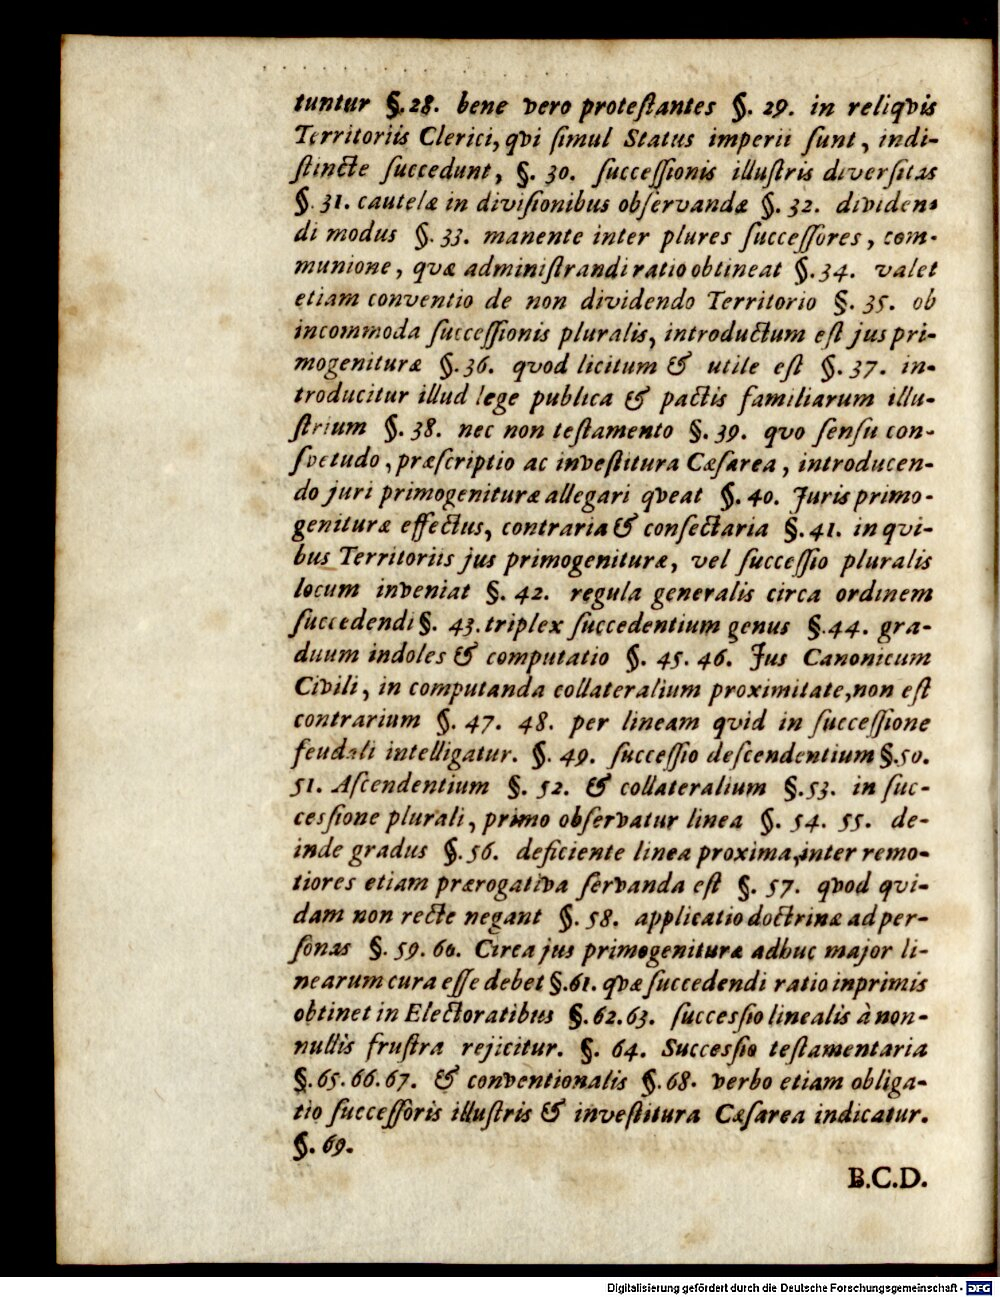 tuntur §.28. bene vero proteſtantes §. 29. in reliqvis
Territoriis Clerici, qvi ſimul Status imperii ſunt, indi-
ſtincte ſuccedunt, §. 30. ſucceſſionis illuſtris diverſitas
§.31. cautelæ in diviſionibus obſervandæ §. 32. dividen-
di modus §.33. manente inter plures ſucceſſores, com-
munione, qvæ adminiſtrandi ratio obtineat §.34. valet
etiam conventio de non dividendo Territorio §. 35. ob
incommoda ſucceſſionis pluralis, introductum eſt jus pri-
mogenituræ §.36. quod licitum & utile eſt §.37. in-
troducitur illud lege publica & pactis familiarum illu-
ſtrium §.38. nec non teſtamento §.39. quo ſenſu con-
ſvetudo, præſcriptio ac inveſtitura Cæſarea, introducen-
do juri primogenituræ allegari qveat §.40. Juris primo-
genituræ effectus, contraria & conſectaria §.41. in qvi-
bus Territoriis jus primogenituræ, vel ſucceſſio pluralis
locum inveniat §. 42. regula generalis circa ordinem
ſuccedendi §. 43. triplex ſuccedentium genus §.44. gra-
duum indoles & computatio §. 45. 46. Jus Canonicum
Civili, in computanda collateralium proximitate, non eſt
contrarium §. 47. 48. per lineam quid in ſucceſſione
feudali intelligatur. §. 49. ſucceſſio deſcendentium §.50.
51. Aſcendentium §. 52. & collateralium §.53. in ſuc-
cesſione plurali, primo obſervatur linea §. 54. 55. de-
inde gradus §.56. deficiente linea proxima, inter remo-
tiores etiam prærogativa ſervanda eſt §. 57. qvod qvi-
dam non recte negant §. 58. applicatio doctrinæ ad per-
ſonas §. 59. 60. Circa jus primogenituræ adhuc major li-
nearum cura eſſe debet §.61. qvæ ſuccedendi ratio inprimis
obtinet in Electoratibus §.62.63. ſuccesſio linealis à non-
nullis fruſtra rejicitur. §. 64. Succesſio teſtamentaria
§.65.66.67. & conventionalis §.68. verbo etiam obliga-
tio ſucceſſoris illuſtris & inveſtitura Cæſarea indicatur.
§. 69.
B.C.D.
Digitalisierung gefördert durch die Deutsche Forschungsgemeinschaft - DFG